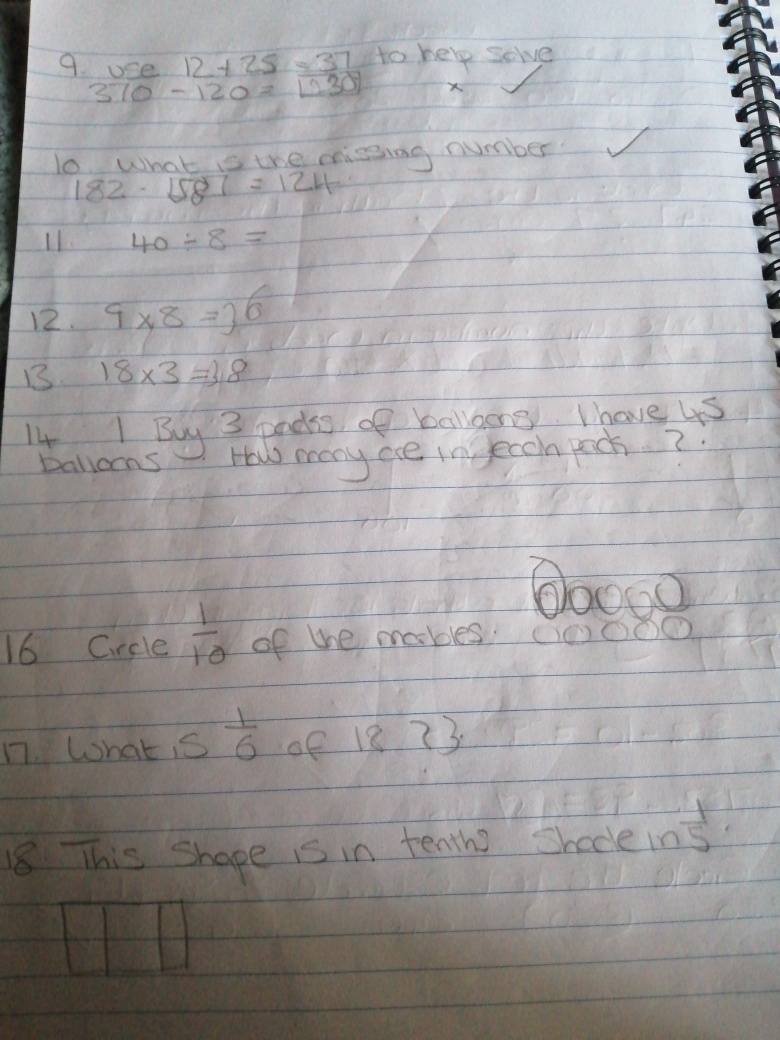 9. use 12 + 25 = 37 to help solve
370 - 120 = 230 x ✓
10. What is the missing number ✓
182 - [58] = 124
11. 40 ÷ 8 =
12. 9 x 8 = 36
13. 18 x 3 = 38
14 I Buy 3 packs of balloons. I have 45
balloons How many are in each pack ?
16 Circle 1/10 of the marbles.
17. What is 1/6 of 18 ? 3.
18. This Shape is in tenths Shade in 1/5.